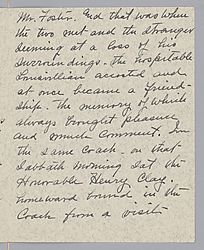 Mr. Foster. And that was when
the two met and the stranger
seeming at a loss of his
surroundings. The hospitable
Louisvillian acosted and
at once became a friend-
ship. The memory of which
always brought pleasure
and much comment. In
the same coach on that
Sabbath morning sat the
Honorable Henry Clay,
homeward bound in the
Coach from a visit